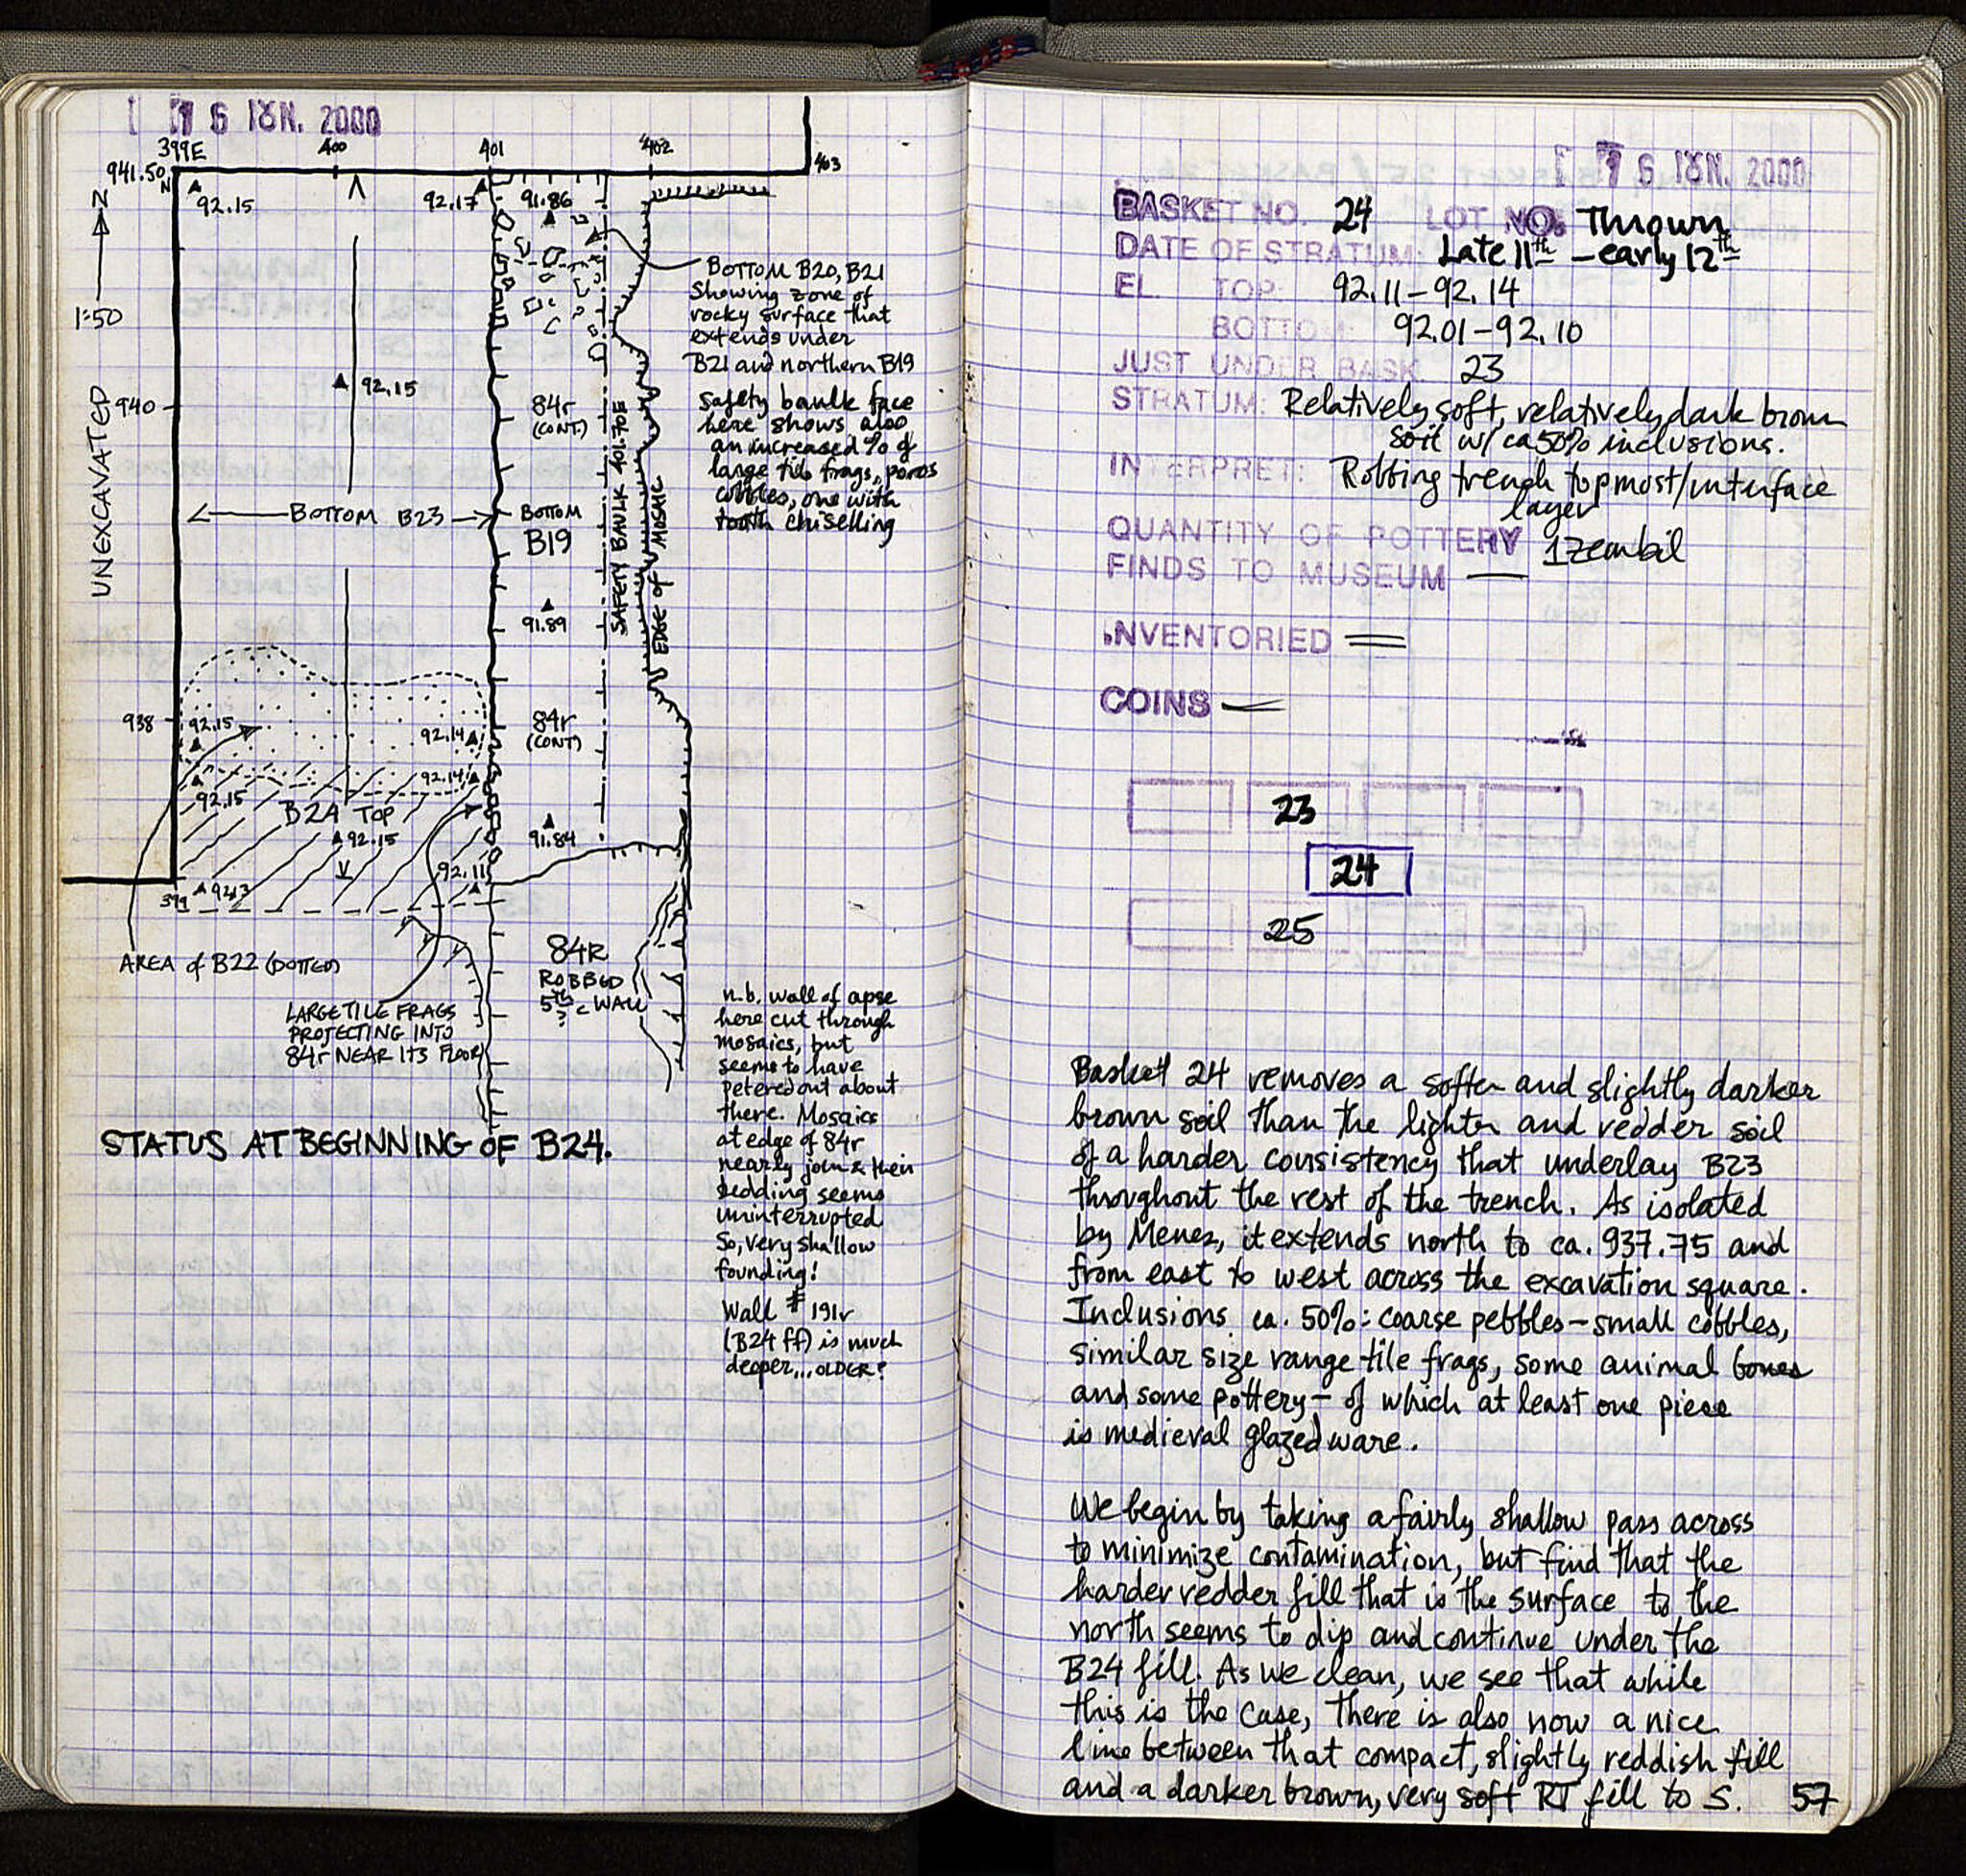 16 IOYN. 2000
399E 400 401 402
403
941.50
N
N
92.15 92.17 91.86
1:50
BOTTOM B20, B21
Showing zone of
rocky surface that
extends under
B21 and northern B19
92.15
940
84r
(CONT.)
Safety baulk face
here shows also
an increased % of
large tile frags, poros
cobbles, one with
tooth chiselling
UNEXCAVATED
BOTTOM B23
BOTTOM
B19
SAFETY BAULK 401.70E
EDGE OF MOSAIC
91.89
938
92.15
92.14
84r
(CONT)
92.14
92.15
B24 TOP
92.15
91.84
92.11
399
92.13
AREA of B22 (DOTTED)
LARGE TILE FRAGS
PROJECTING INTO
84r NEAR ITS FLOOR
84R
ROBBED
5th c WALL
?
n.b. wall of apse
here cut through
mosaics, but
seems to have
petered out about
there. Mosaics
at edge of 84r
nearly join & their
bedding seems
uninterrupted
So, very shallow
founding!
Wall # 191r
(B24 ff) is much
deeper...OLDER?
STATUS AT BEGINNING OF B24.
16 IOYN. 2000
BASKET NO. 24 LOT NO. Thrown
DATE OF STRATUM: Late 11th – early 12th
EL. TOP: 92.11–92.14
BOTTOM: 92.01–92.10
JUST UNDER BASK. 23
STRATUM: Relatively soft, relatively dark brown
soil w/ ca 50% inclusions.
INTERPRET: Robbing trench topmost/interface
layer
QUANTITY OF POTTERY 1 zembil
FINDS TO MUSEUM —
INVENTORIED =
COINS —
23
24
25
Basket 24 removes a softer and slightly darker
brown soil than the lighter and redder soil
of a harder consistency that underlay B23
throughout the rest of the trench. As isolated
by Menes, it extends north to ca. 937.75 and
from east to west across the excavation square.
Inclusions ca. 50%: coarse pebbles – small cobbles,
similar size range tile frags, some animal bones
and some pottery – of which at least one piece
is medieval glazed ware.
We begin by taking a fairly shallow pass across
to minimize contamination, but find that the
harder redder fill that is the surface to the
north seems to dip and continue under the
B24 fill. As we clean, we see that while
this is the case, there is also now a nice
line between that compact, slightly reddish fill
and a darker brown, very soft RT fill to S. 57